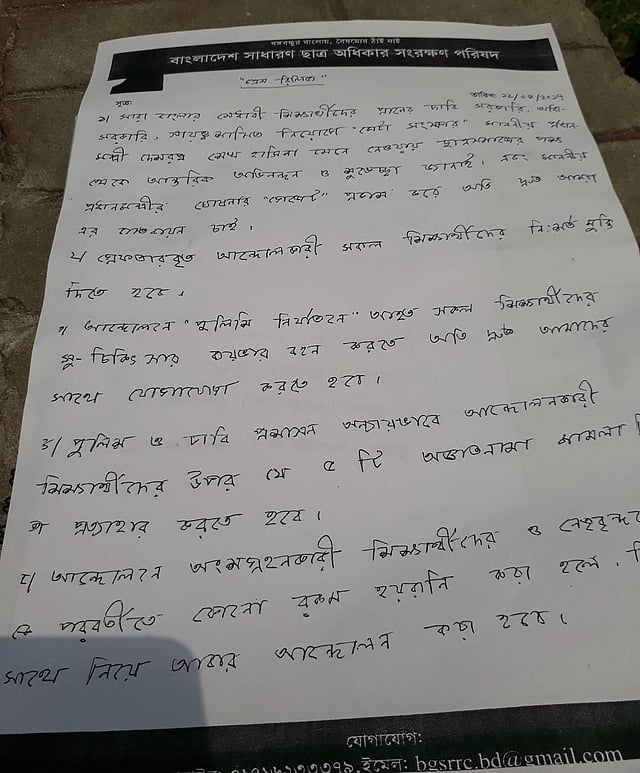 বঙ্গবন্ধুর বাংলায়, বৈষম্যের ঠাঁই নাই
বাংলাদেশ সাধারণ ছাত্র অধিকার সংরক্ষণ পরিষদ
"প্রেস রিলিজ"
সূত্র: তারিখ:
১। সারা বাংলার মেধাবী শিক্ষার্থীদের প্রানের দাবি সরকারি, আধা-
সরকারি, স্বায়ত্বশাসিত নিয়োগে "কোটা সংস্কার" মাননীয় প্রধান-
মন্ত্রী দেশরত্ন শেখ হাসিনা মেনে নেওয়ায় ছাত্রসমাজের পক্ষ
থেকে আন্তরিক অভিনন্দন ও শুভেচ্ছা জানাই। এবং মাননীয়
প্রধানমন্ত্রীর ঘোষনার "গেজেট" প্রকাশ করে অতি দ্রুত আমরা
এর বাস্তবায়ন চাই।
২। গ্রেফতারকৃত আন্দোলনকারী সকল শিক্ষার্থীদের নি:শর্ত মুক্তি
দিতে হবে।
৩। আন্দোলনে "পুলিশি নির্যাতনে" আহত সকল শিক্ষার্থীদের
সু-চিকিৎসার ব্যয়ভার বহন করতে অতি দ্রুত আমাদের
সাথে যোগাযোগ করতে হবে।
৪। পুলিশ ও ঢাবি প্রশাসন অন্যায়ভাবে আন্দোলনকারী
শিক্ষার্থীদের উপর যে ৫ টি অজ্ঞাতনামা মামলা
তা প্রত্যাহার করতে হবে।
৫। আন্দোলনে অংশগ্রহনকারী শিক্ষার্থীদের ও নেতৃবৃন্দ
কে পরবর্তীতে কোনো রকম হয়রানি করা হলে,
সাথে নিয়ে আবার আন্দোলন করা হবে।
যোগাযোগ:
ইমেল: bgsrrc.bd@gmail.com